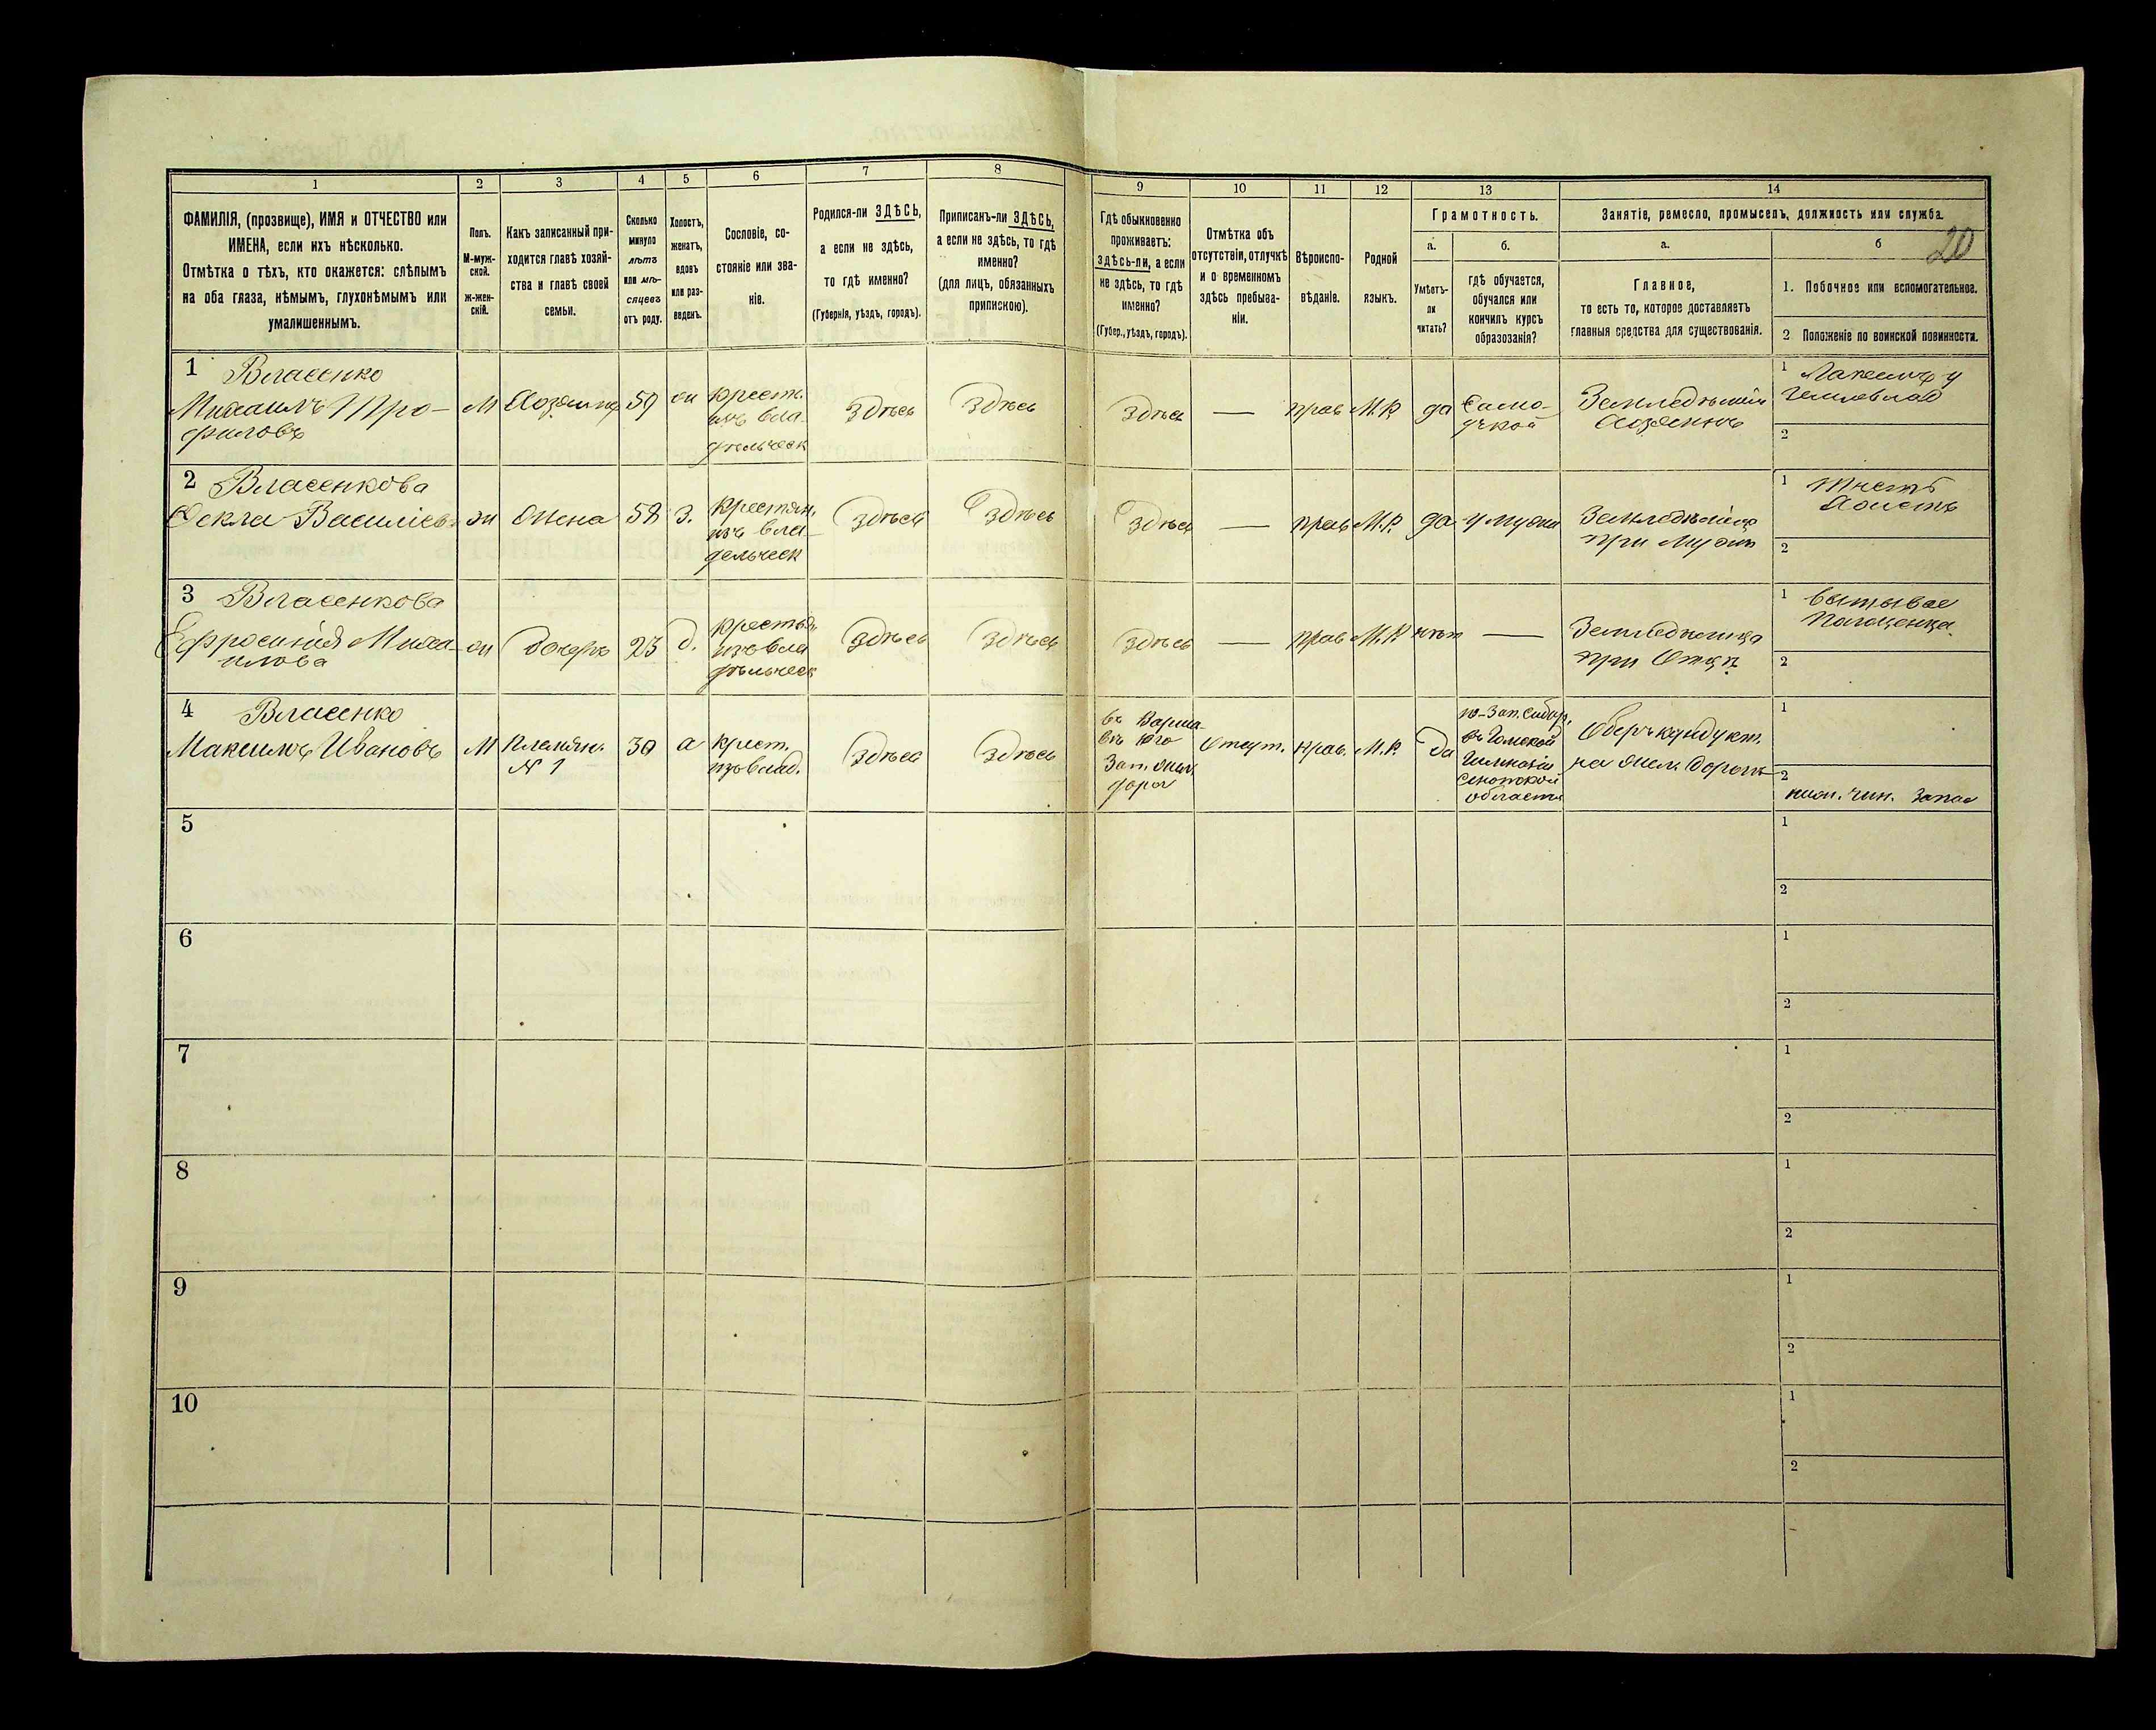 20
1 2 3 4 5 6 7 8 9 10 11 12 13 14
ФАМИЛІЯ, (прозвище), ИМЯ и ОТЧЕСТВО или
ИМЕНА, если ихъ нѣсколько.
Отмѣтка о тѣхъ, кто окажется: слѣпымъ
на оба глаза, нѣмымъ, глухонѣмымъ или
умалишеннымъ.
Полъ.
М-муж-
ской.
ж-жен-
скій.
Какъ записанный при-
ходится главѣ хозяй-
ства и главѣ своей
семьи.
Сколько
минуло
лѣтъ
или мѣ-
сяцевъ
отъ роду.
Холостъ,
женатъ,
вдовъ
или раз-
веденъ.
Сословіе, со-
стояніе или зва-
ніе.
Родился-ли ЗДѢСЬ,
а если не здѣсь,
то гдѣ именно?
(Губернія, уѣздъ, городъ).
Приписанъ-ли ЗДѢСЬ,
а если не здѣсь, то гдѣ
именно?
(для лицъ, обязанныхъ
припискою).
Гдѣ обыкновенно
проживаетъ:
здѣсь-ли, а если
не здѣсь, то гдѣ
именно?
(Губер., уѣздъ, городъ).
Отмѣтка объ
отсутствіи, отлучкѣ
и о временномъ
здѣсь пребыва-
ніи.
Вѣроиспо-
вѣданіе.
Родной
языкъ.
Грамотность.
а.
Умѣетъ-
ли
читать?
б.
гдѣ обучается,
обучался или
кончилъ курсъ
образованія?
Занятіе, ремесло, промыселъ, должность или служба.
а.
Главное,
то есть то, которое доставляетъ
главныя средства для существованія.
б
1. Побочное или вспомогательное.
2. Положеніе по воинской повинности.
1 Власенко
Михаилъ Тро-
филовъ
М
Хозяинъ
59
ж
крест.
изъ вла-
дѣльческ
Здѣсь
Здѣсь
Здѣсь
—
прав
М.Р.
да
Само-
учкой
Земледѣлій
Хозяинъ
1
2
2 Власенкова
Фекла Василіев
ж
Жена
58
З.
крестян.
изъ вла-
дельческ
Здѣсь
Здѣсь
Здѣсь
—
прав
М.Р.
да
Земледѣліе
при мужѣ
1
2
3 Власенкова
Ефросинія Миха-
илова
ж
дочерь
23
д.
крестья
изъ вла
дѣльческ
Здѣсь
Здѣсь
Здѣсь
—
прав
М.Р
нѣт
—
при Отцѣ
1
2
4 Власенко
Максимъ Ивановъ
М
племян.
№ 1
30
крест.
изъ влад.
Здѣсь
Здѣсь
въ Варша-
вѣ Юго
Зап. жел.
дорог
Отсут.
прав.
М.Р.
да
въ Томской
Гимназіи
области
Оберъ кондукт.
на жел. дорогѣ
1
2
чин. запас
5 1 2
6 1 2
7 1 2
8 1 2
9 1 2
10 1 2